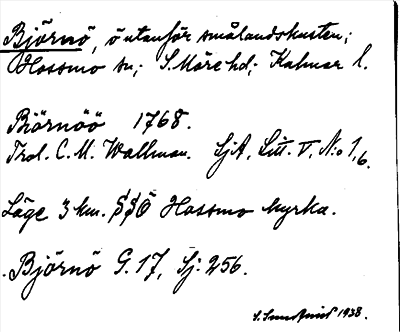 Björnö, ö utanför smålandskusten;
Hossmo sn; S. Möre hd; Kalmar l.
Biörnöö 1768.
Trol. C. M. Wallman. SjA, Litt. V, N:o 1,6.
Läge 3 km. SSÖ Hossmo kyrka.
Björnö G. 17, Sj: 256.
1938.